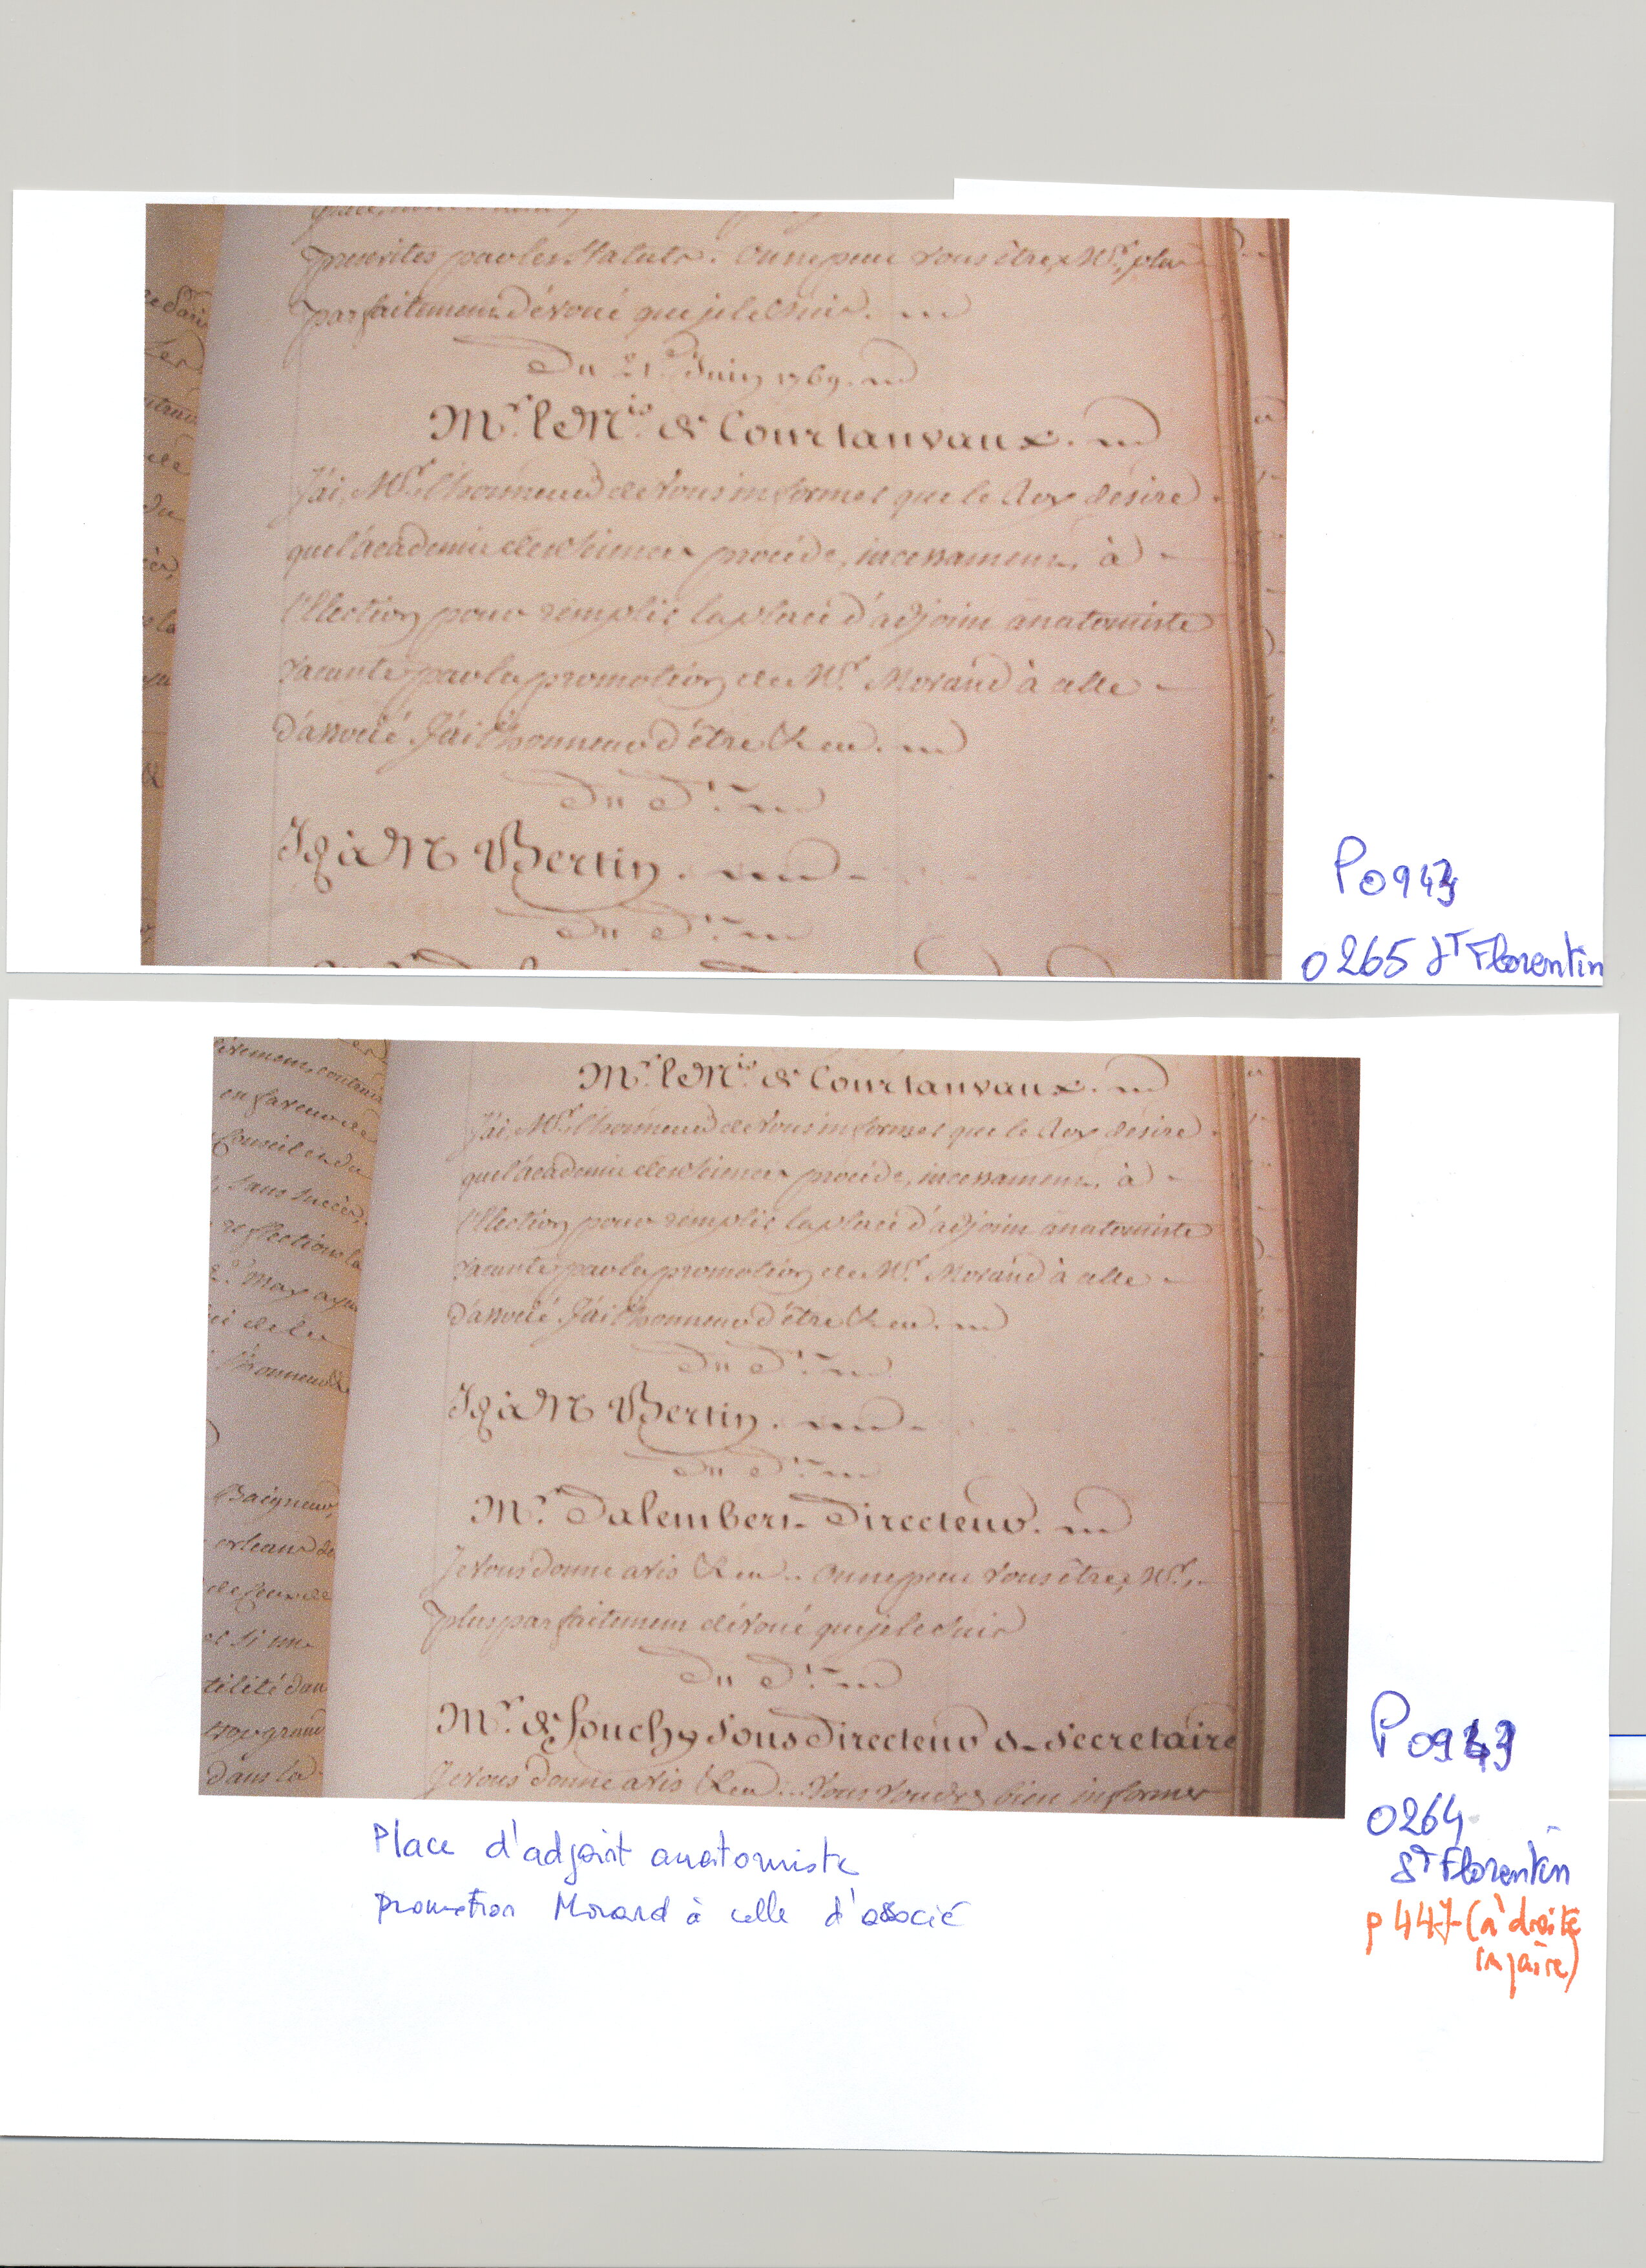 prescrites par les Statuts. On ne peut vous être, Mr., plus
parfaitement dévoué que je le suis.
Du 21. Juin 1769.
Mr. le Mis. de Courtanvaux.
J'ai, Mr. l'honneur de vous informer que le Roy desire
que l'académie des Sciences procède, incessament, à
l'Election pour remplir la place d'adjoint anatomiste
vacante par la promotion de Mr. Morand à celle
d'associé. J'ai l'honneur d'être &ca.
Du d.
Id. à M Bertin.
Du d.
P0943
0265 St Florentin
Mr. le Mis. de Courtanvaux.
J'ai, Mr. l'honneur de vous informer que le Roy desire
que l'académie des Sciences procède, incessament, à
l'Election pour remplir la place d'adjoint anatomiste
vacante par la promotion de Mr. Morand à celle
d'associé. J'ai l'honneur d'être &ca.
Du d.
Id. à M Bertin.
Du d.
Mr. Dalembert Directeur.
Je vous donne avis &ca.. On ne peut vous être, Mr.,
plus parfaitement dévoué que je le suis
Du d.
Mr. de fouchy Sous Directeur & Secretaire
Je vous donne avis &ca... Vous voudrez bien informer
en faveur de
Conseil en du
, sans succès,
reflections la
l'honneur de
Baigneur,
orleans de
et si un
tilité dan
trop grand
dans la
P0943
0264
St Florentin
p 447 (à droite
impaire)
Place d'adjoint anatomiste
promotion Morand à celle d'associé